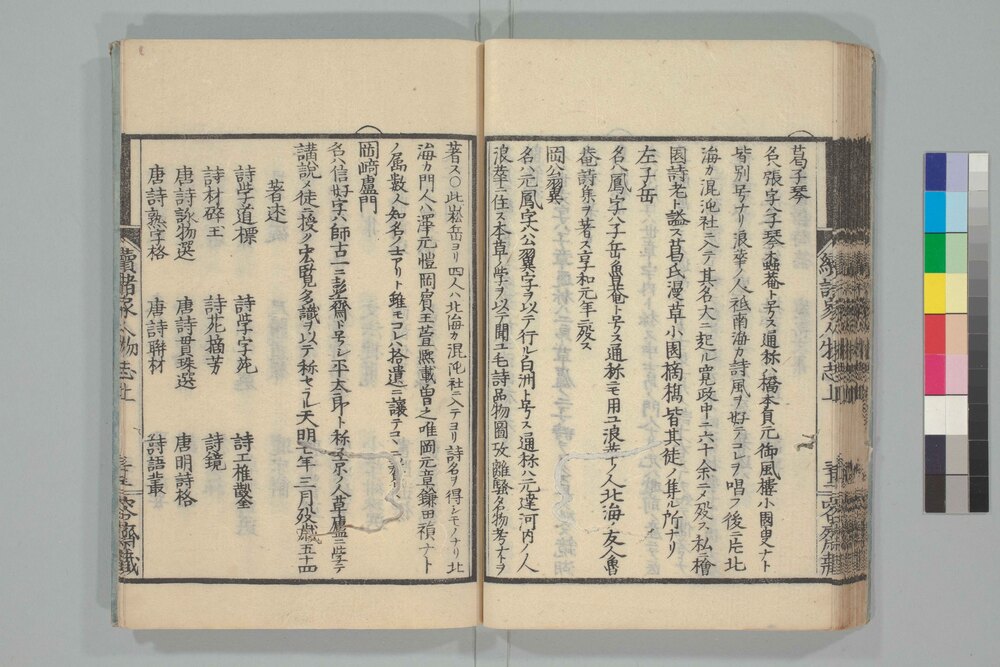 葛子琴
名ハ張字ハ子琴蠧菴ト号ス通称ハ橋本貞元御風樓小園叟ナト
皆別号ナリ浪華ノ人祗南海カ詩風ヲ好テコレヲ唱フ後ニ片北
海カ混沌社ニ入テ其名大ニ起ル寛政中ニ六十余ニメ歿ス私ニ檜
園詩老ト謚ス葛氏漫草小園摘槁皆其徒ノ集ル所ナリ
左子岳
名ハ鳳字ハ子岳魯菴ト号ス通称ニモ用ユ浪華ノ人北海ノ友人魯
菴詩集ヲ著ス享和元年ニ歿ス
岡公翼
名ハ元鳳字ハ公翼字ヲ以テ行ル白洲ト号ス通称ハ元達河内ノ人
浪華ニ住ス本草ノ学ヲ以テ聞ユ毛詩品物圖攷離騒名物考ナトヲ
著ス○此崧岳ヨリ四人ハ北海カ混沌社ニ入テヨリ詩名ヲ得シモノナリ北
海カ門人ハ澤元愷岡賓王萱黙載曽之唯岡元章鎌田禎ナト
ノ属数人知名ノ士アリト雖モコレハ拾遺ニ譲テコヽニ齎セス
岡﨑盧門
名ハ信好字ハ師古一ニ彭齋ト号シ平太郎ト称ス京ノ人草廬ニ学テ
講説メ徒ニ授ク宏覧多識ヲ以テ称セラレ天明七年三月歿歳五十四
著述
詩学道標 詩字字苑 詩工椎鑿
詩材碎玉 詩苑摘芳 詩鏡
唐詩詠物選 唐詩貫珠選 唐明詩格
唐詩熟字格 唐詩聯材 詩語叢
續諸家人物志上